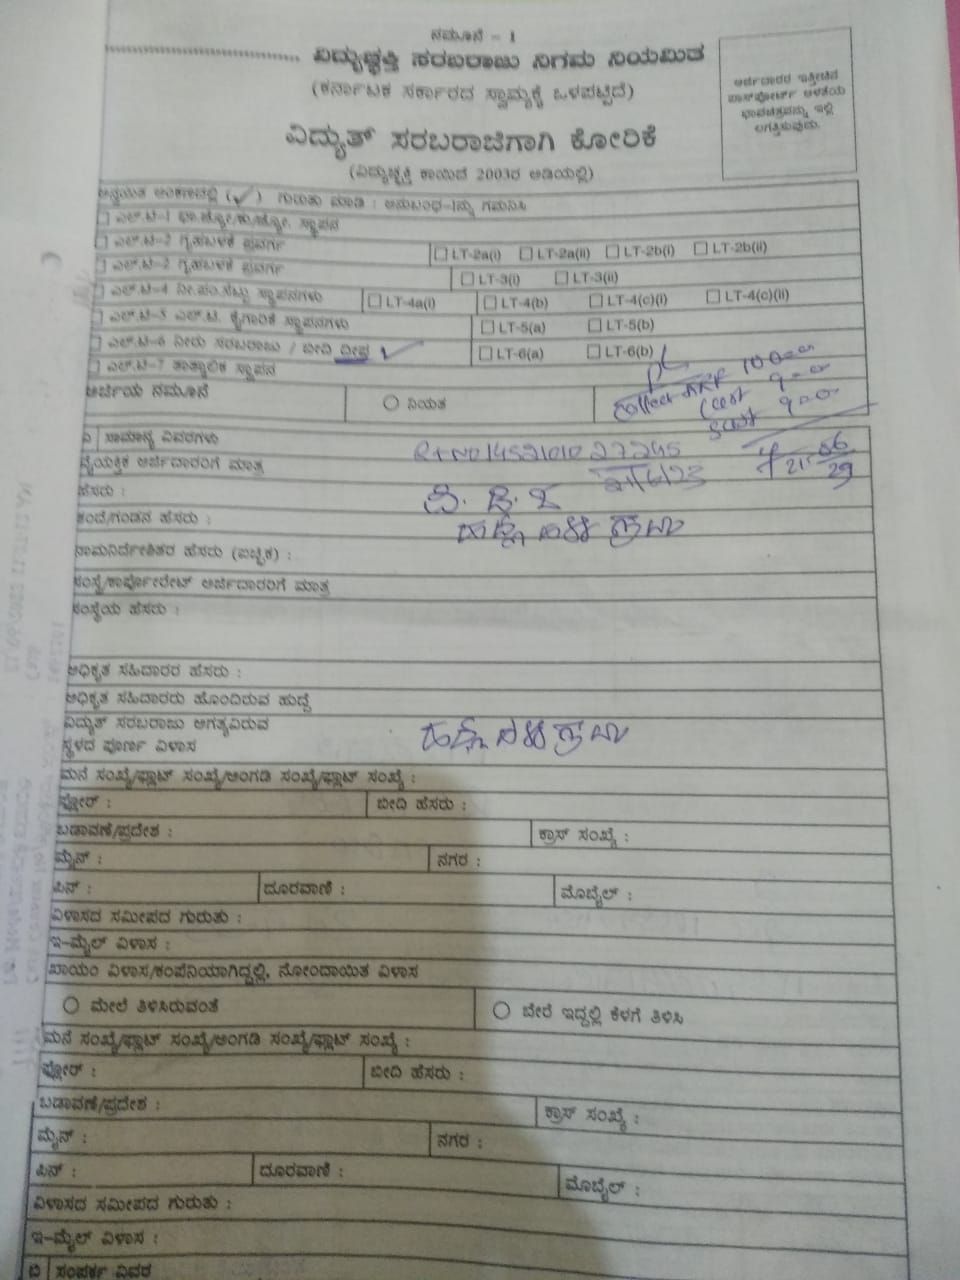 ನಮೂನೆ - 1
ವಿದ್ಯುಚ್ಛಕ್ತಿ ಸರಬರಾಜು ನಿಗಮ ನಿಯಮಿತ
(ಕರ್ನಾಟಕ ಸರ್ಕಾರದ ಸ್ವಾಮ್ಯಕ್ಕೆ ಒಳಪಟ್ಟಿದೆ)
ಅರ್ಜಿದಾರರ ಇತ್ತೀಚಿನ
ಪಾಸ್‌ಪೋರ್ಟ್ ಅಳತೆಯ
ಭಾವಚಿತ್ರವನ್ನು ಇಲ್ಲಿ
ಲಗತ್ತಿಸುವುದು.
ವಿದ್ಯುತ್ ಸರಬರಾಜಿಗಾಗಿ ಕೋರಿಕೆ
(ವಿದ್ಯುಚ್ಛಕ್ತಿ ಕಾಯಿದೆ 2003ರ ಅಡಿಯಲ್ಲಿ)
ಅನ್ವಯಿತ ಅಂಕಣದಲ್ಲಿ (✓) ಗುರುತು ಮಾಡಿ : ಅನುಬಂಧ-1ನ್ನು ಗಮನಿಸಿ
ಎಲ್.ಟಿ-1 ಸ್ಥಾಪನ
ಎಲ್.ಟಿ-2 ಗೃಹಬಳಕೆ ಪ್ರವರ್ಗ LT-2a(i) LT-2a(ii) LT-2b(i) LT-2b(ii)
ಎಲ್.ಟಿ-2 ಗೃಹಬಳಕೆ ಪ್ರವರ್ಗ LT-3(i) LT-3(ii)
ಎಲ್.ಟಿ-4 ನೀ.ಪಂ.ಸೆಟ್ಟು ಸ್ಥಾಪನಗಳು LT-4a(i) LT-4(b) LT-4(c)(i) LT-4(c)(ii)
ಎಲ್.ಟಿ-5 ಎಲ್.ಟಿ. ಕೈಗಾರಿಕೆ ಸ್ಥಾಪನಗಳು LT-5(a) LT-5(b)
ಎಲ್.ಟಿ-6 ನೀರು ಸರಬರಾಜು / ಬೀದಿ ದೀಪ ✓ LT-6(a) LT-6(b)
ಎಲ್.ಟಿ-7 ತಾತ್ಕಾಲಿಕ ಸ್ಥಾಪನ
ಅರ್ಜಿಯ ನಮೂನೆ ನಿಯತ
collect
ಸಾಮಾನ್ಯ ವಿವರಗಳು
ವೈಯಕ್ತಿಕ ಅರ್ಜಿದಾರರಿಗೆ ಮಾತ್ರ
21/6/23
ಹೆಸರು :
ತಂದೆ/ಗಂಡನ ಹೆಸರು :
ನಾಮನಿರ್ದೇಶಿತರ ಹೆಸರು (ಐಚ್ಛಿಕ) :
ಸಂಸ್ಥೆ/ಕಾರ್ಪೋರೇಟ್ ಅರ್ಜಿದಾರರಿಗೆ ಮಾತ್ರ
ಸಂಸ್ಥೆಯ ಹೆಸರು :
ಅಧಿಕೃತ ಸಹಿದಾರರ ಹೆಸರು :
ಅಧಿಕೃತ ಸಹಿದಾರರು ಹೊಂದಿರುವ ಹುದ್ದೆ
ವಿದ್ಯುತ್ ಸರಬರಾಜು ಅಗತ್ಯವಿರುವ
ಸ್ಥಳದ ಪೂರ್ಣ ವಿಳಾಸ
ಮನೆ ಸಂಖ್ಯೆ/ಫ್ಲಾಟ್ ಸಂಖ್ಯೆ/ಅಂಗಡಿ ಸಂಖ್ಯೆ/ಪ್ಲಾಟ್ ಸಂಖ್ಯೆ :
ಫ್ಲೋರ್ : ಬೀದಿ ಹೆಸರು :
ಬಡಾವಣೆ/ಪ್ರದೇಶ : ಕ್ರಾಸ್ ಸಂಖ್ಯೆ :
ಮೈನ್ : ನಗರ :
ಪಿನ್ : ದೂರವಾಣಿ : ಮೊಬೈಲ್ :
ವಿಳಾಸದ ಸಮೀಪದ ಗುರುತು :
ಇ-ಮೈಲ್ ವಿಳಾಸ :
ಖಾಯಂ ವಿಳಾಸ/ಕಂಪೆನಿಯಾಗಿದ್ದಲ್ಲಿ, ನೋಂದಾಯಿತ ವಿಳಾಸ
ಮೇಲೆ ತಿಳಿಸಿರುವಂತೆ ಬೇರೆ ಇದ್ದಲ್ಲಿ ಕೆಳಗೆ ತಿಳಿಸಿ
ಮನೆ ಸಂಖ್ಯೆ/ಫ್ಲಾಟ್ ಸಂಖ್ಯೆ/ಅಂಗಡಿ ಸಂಖ್ಯೆ/ಪ್ಲಾಟ್ ಸಂಖ್ಯೆ :
ಫ್ಲೋರ್ : ಬೀದಿ ಹೆಸರು :
ಬಡಾವಣೆ/ಪ್ರದೇಶ : ಕ್ರಾಸ್ ಸಂಖ್ಯೆ :
ಮೈನ್ : ನಗರ :
ಪಿನ್ : ದೂರವಾಣಿ : ಮೊಬೈಲ್ :
ವಿಳಾಸದ ಸಮೀಪದ ಗುರುತು :
ಇ-ಮೈಲ್ ವಿಳಾಸ :
ಬಿ ಸಂಪರ್ಕ ವಿವರ